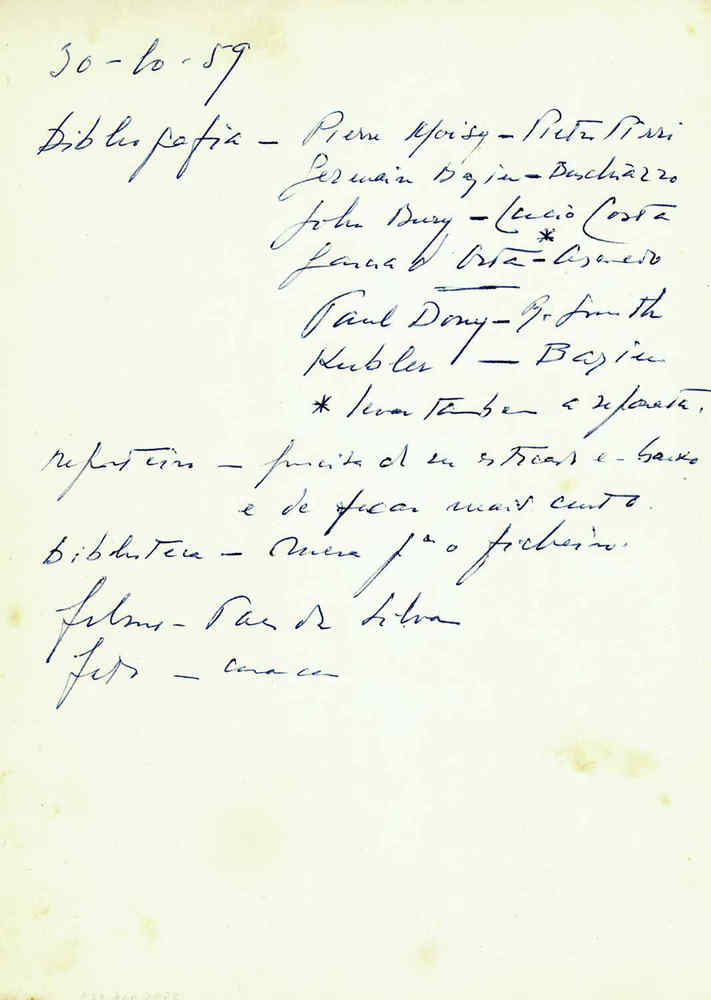 30-10-59
Bibliografia — Pierre Moisy — Pietro Pirri
Germain Bazin — Buschiazzo
John Bury — Lucio Costa
Garcia d'Orta* — Azevedo
Paul Dony — R. Smith
Kubler — Bazin
* levar tambem a
— precisa de ser esticado em baixo
e de ficar mais curto.
Biblioteca — Mesa pª o ficheiro.
Filmes — Paes da Silva
Foto —